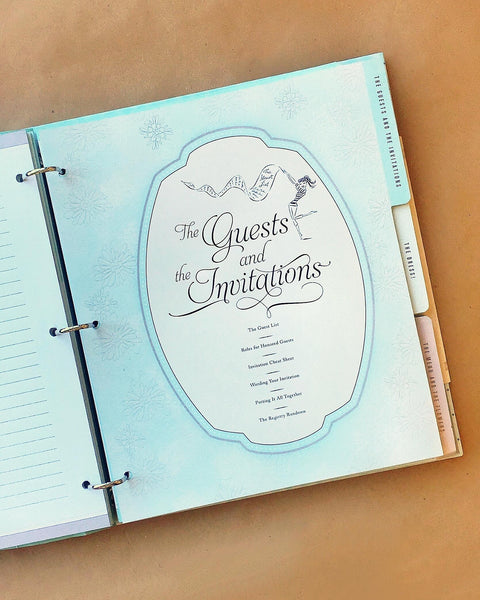 The Guests
and
the Invitations
The Guest List
Roles for Honored Guests
Invitation Cheat Sheet
Wording Your Invitation
Putting It All Together
The Registry Rundown
THE GUESTS AND THE INVITATIONS
THE DRESS!